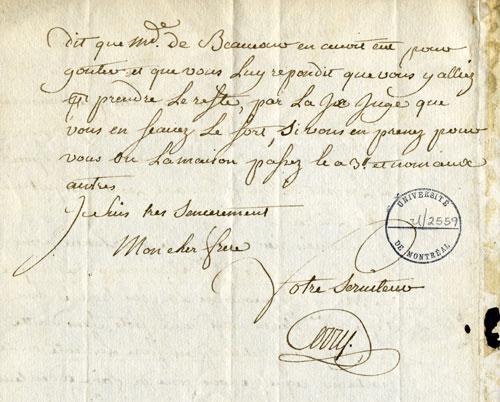 dit que Mde. de Beaucour en auroit eut pour
gouter et que vous Luy repondit que vous y alliez
prendre Le reste, par La Je Juge que
vous en scavez Le sort, si vous en prenez pour
vous ou La maison passez le a 3# et non aux
autres
Je suis tres sincerement
Mon cher frere
Votre Serviteur
UNIVERSITÉ
U/2559
DE MONTRÉAL